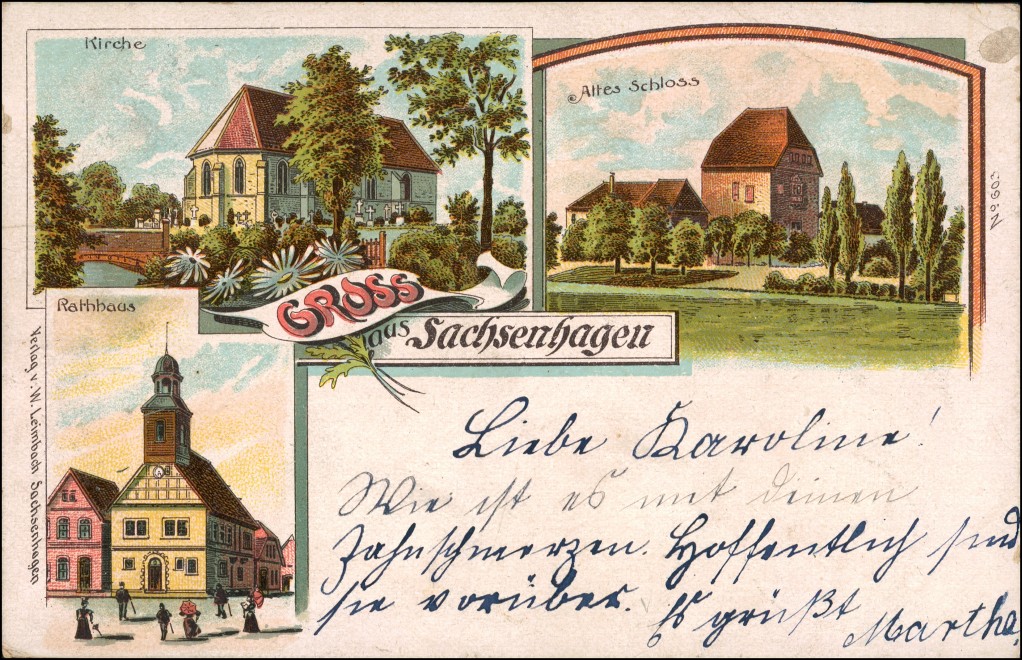 Kirche
Altes Schloss
No 603
GROSS
aus Sachsenhagen
Rathhaus
Verlag v. W. Leimbach Sachsenhagen
Liebe Karoline!
Wie ist es mit deinen
Zahnschmerzen. Hoffentlich sind
sie vorüber. Es grüßt
Martha